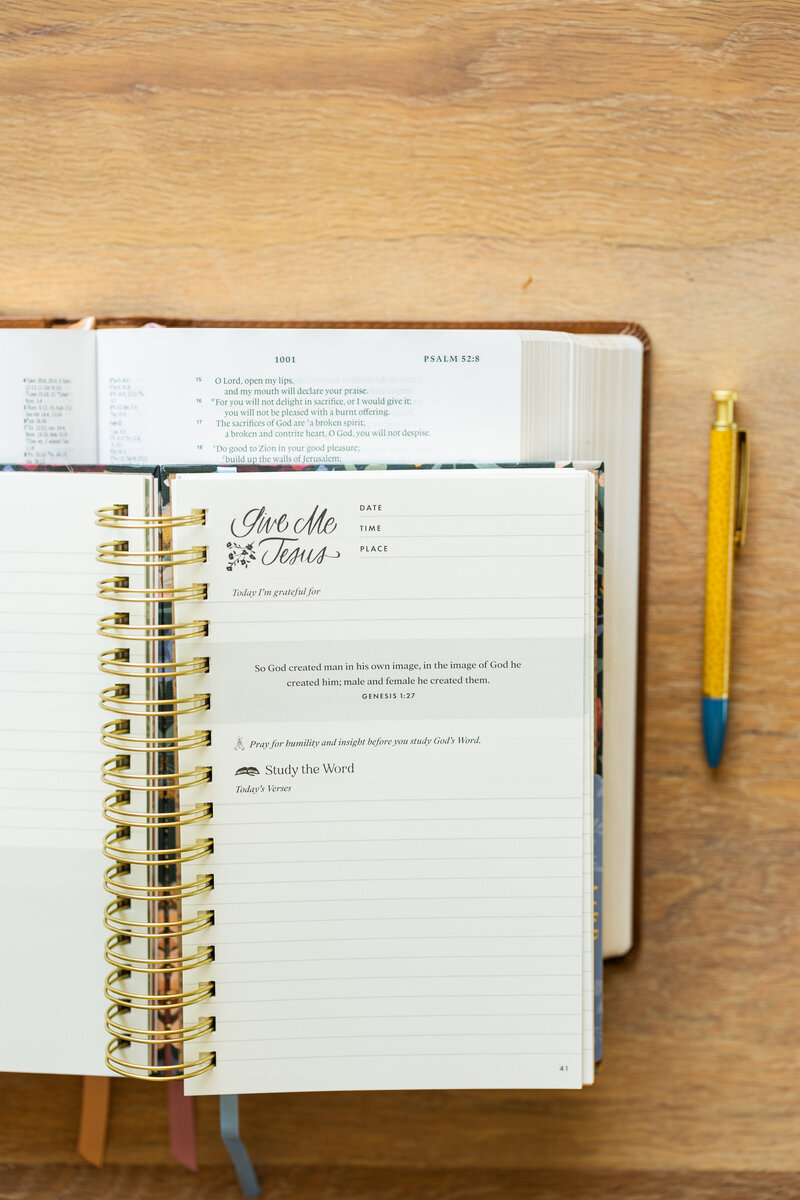 1001
PSALM 52:8
15 O Lord, open my lips,
and my mouth will declare your praise.
16 For you will not delight in sacrifice, or I would give it;
you will not be pleased with a burnt offering.
17 The sacrifices of God are a broken spirit;
a broken and contrite heart, O God, you will not despise.
18 Do good to Zion in your good pleasure;
build up the walls of Jerusalem;
Give Me
Jesus
DATE
TIME
PLACE
Today I'm grateful for
So God created man in his own image, in the image of God he
created him; male and female he created them.
GENESIS 1:27
Pray for humility and insight before you study God's Word.
Study the Word
Today's Verses
41